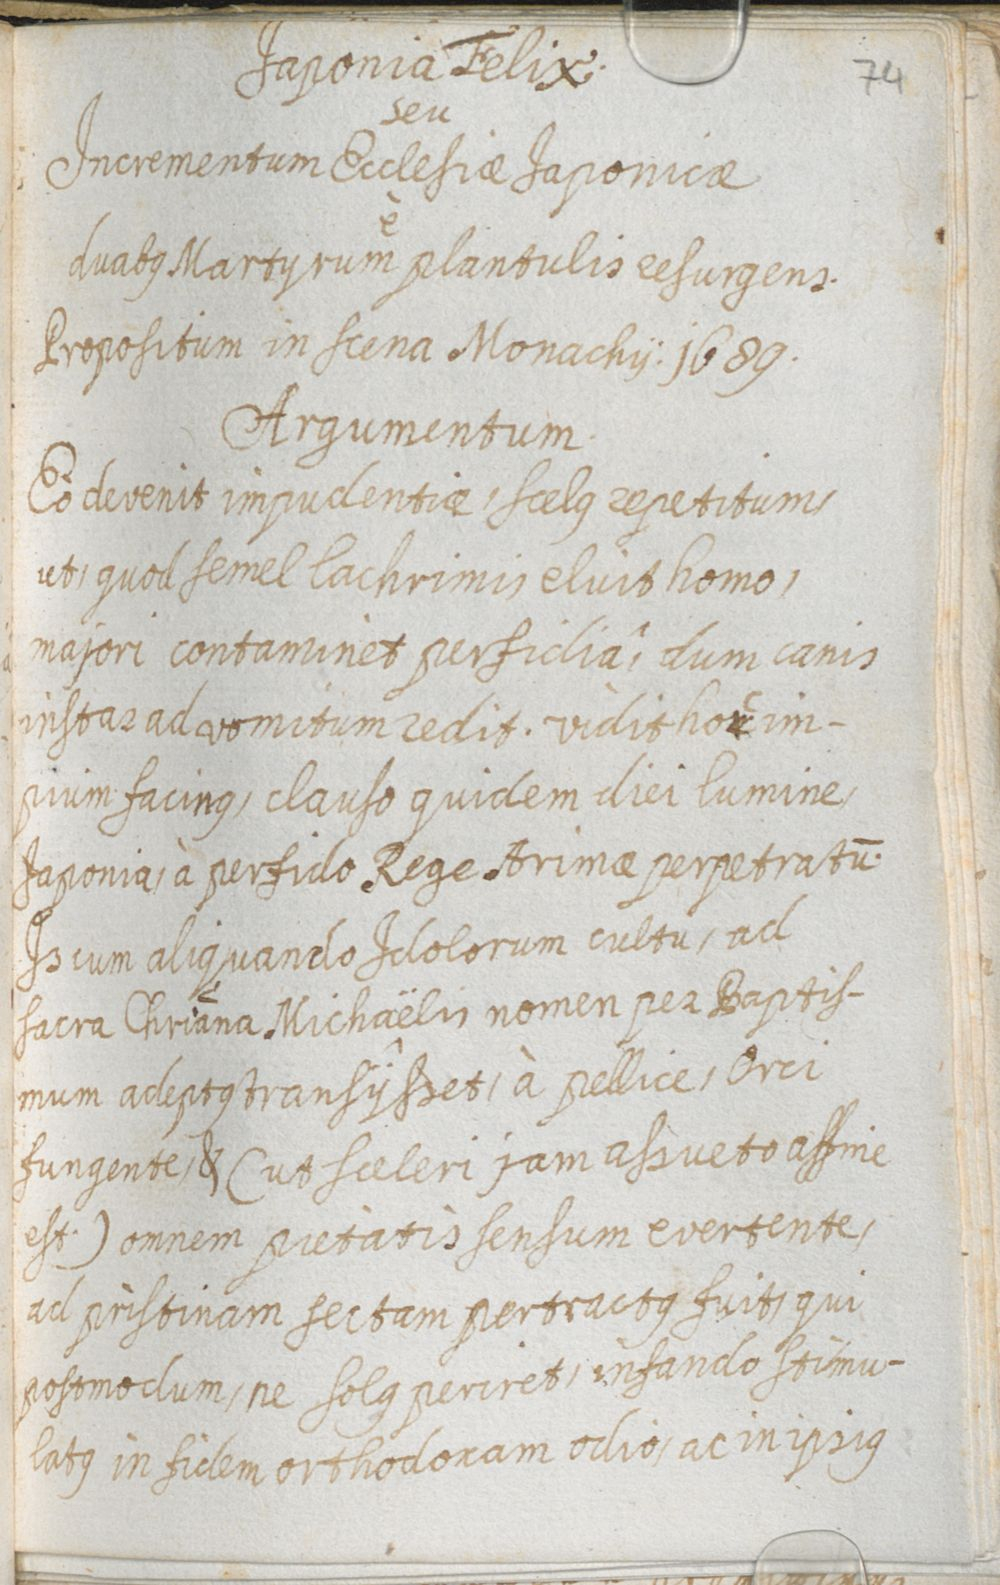 Japonia Felix.
74
seu
Incrementum Ecclesiæ Japonicæ
è
duabꝫ Martyrum plantulis resurgens.
Propositum in scena Monachÿ: 1689.
Argumentum.
Eò devenit impudentiæ, scelꝰ repetitum,
ut, quod semel lachrimis eluit homo,
majori contaminet perfidiâ, dum canis
instar ad vomitum redit. vidit hoc im-
pium facinꝰ, clauso quidem diei lumine,
Japonia, à perfido Rege Arimæ perpetratū.
Is cum aliquando Idolorum cultu, ad
sacra Chriãna Michaëlis nomen per Baptis-
mum adeptꝰ transÿsset, à pellice, Orci
fungente, & (ut sceleri jam assueto affine
est.) omnem pietatis sensum evertente,
ad pristinam sectam pertractꝰ fuit, qui
postmodum, ne solꝰ periret, infando stimu-
latꝰ in fidem orthodoxam odio, ac in ipsiꝰ